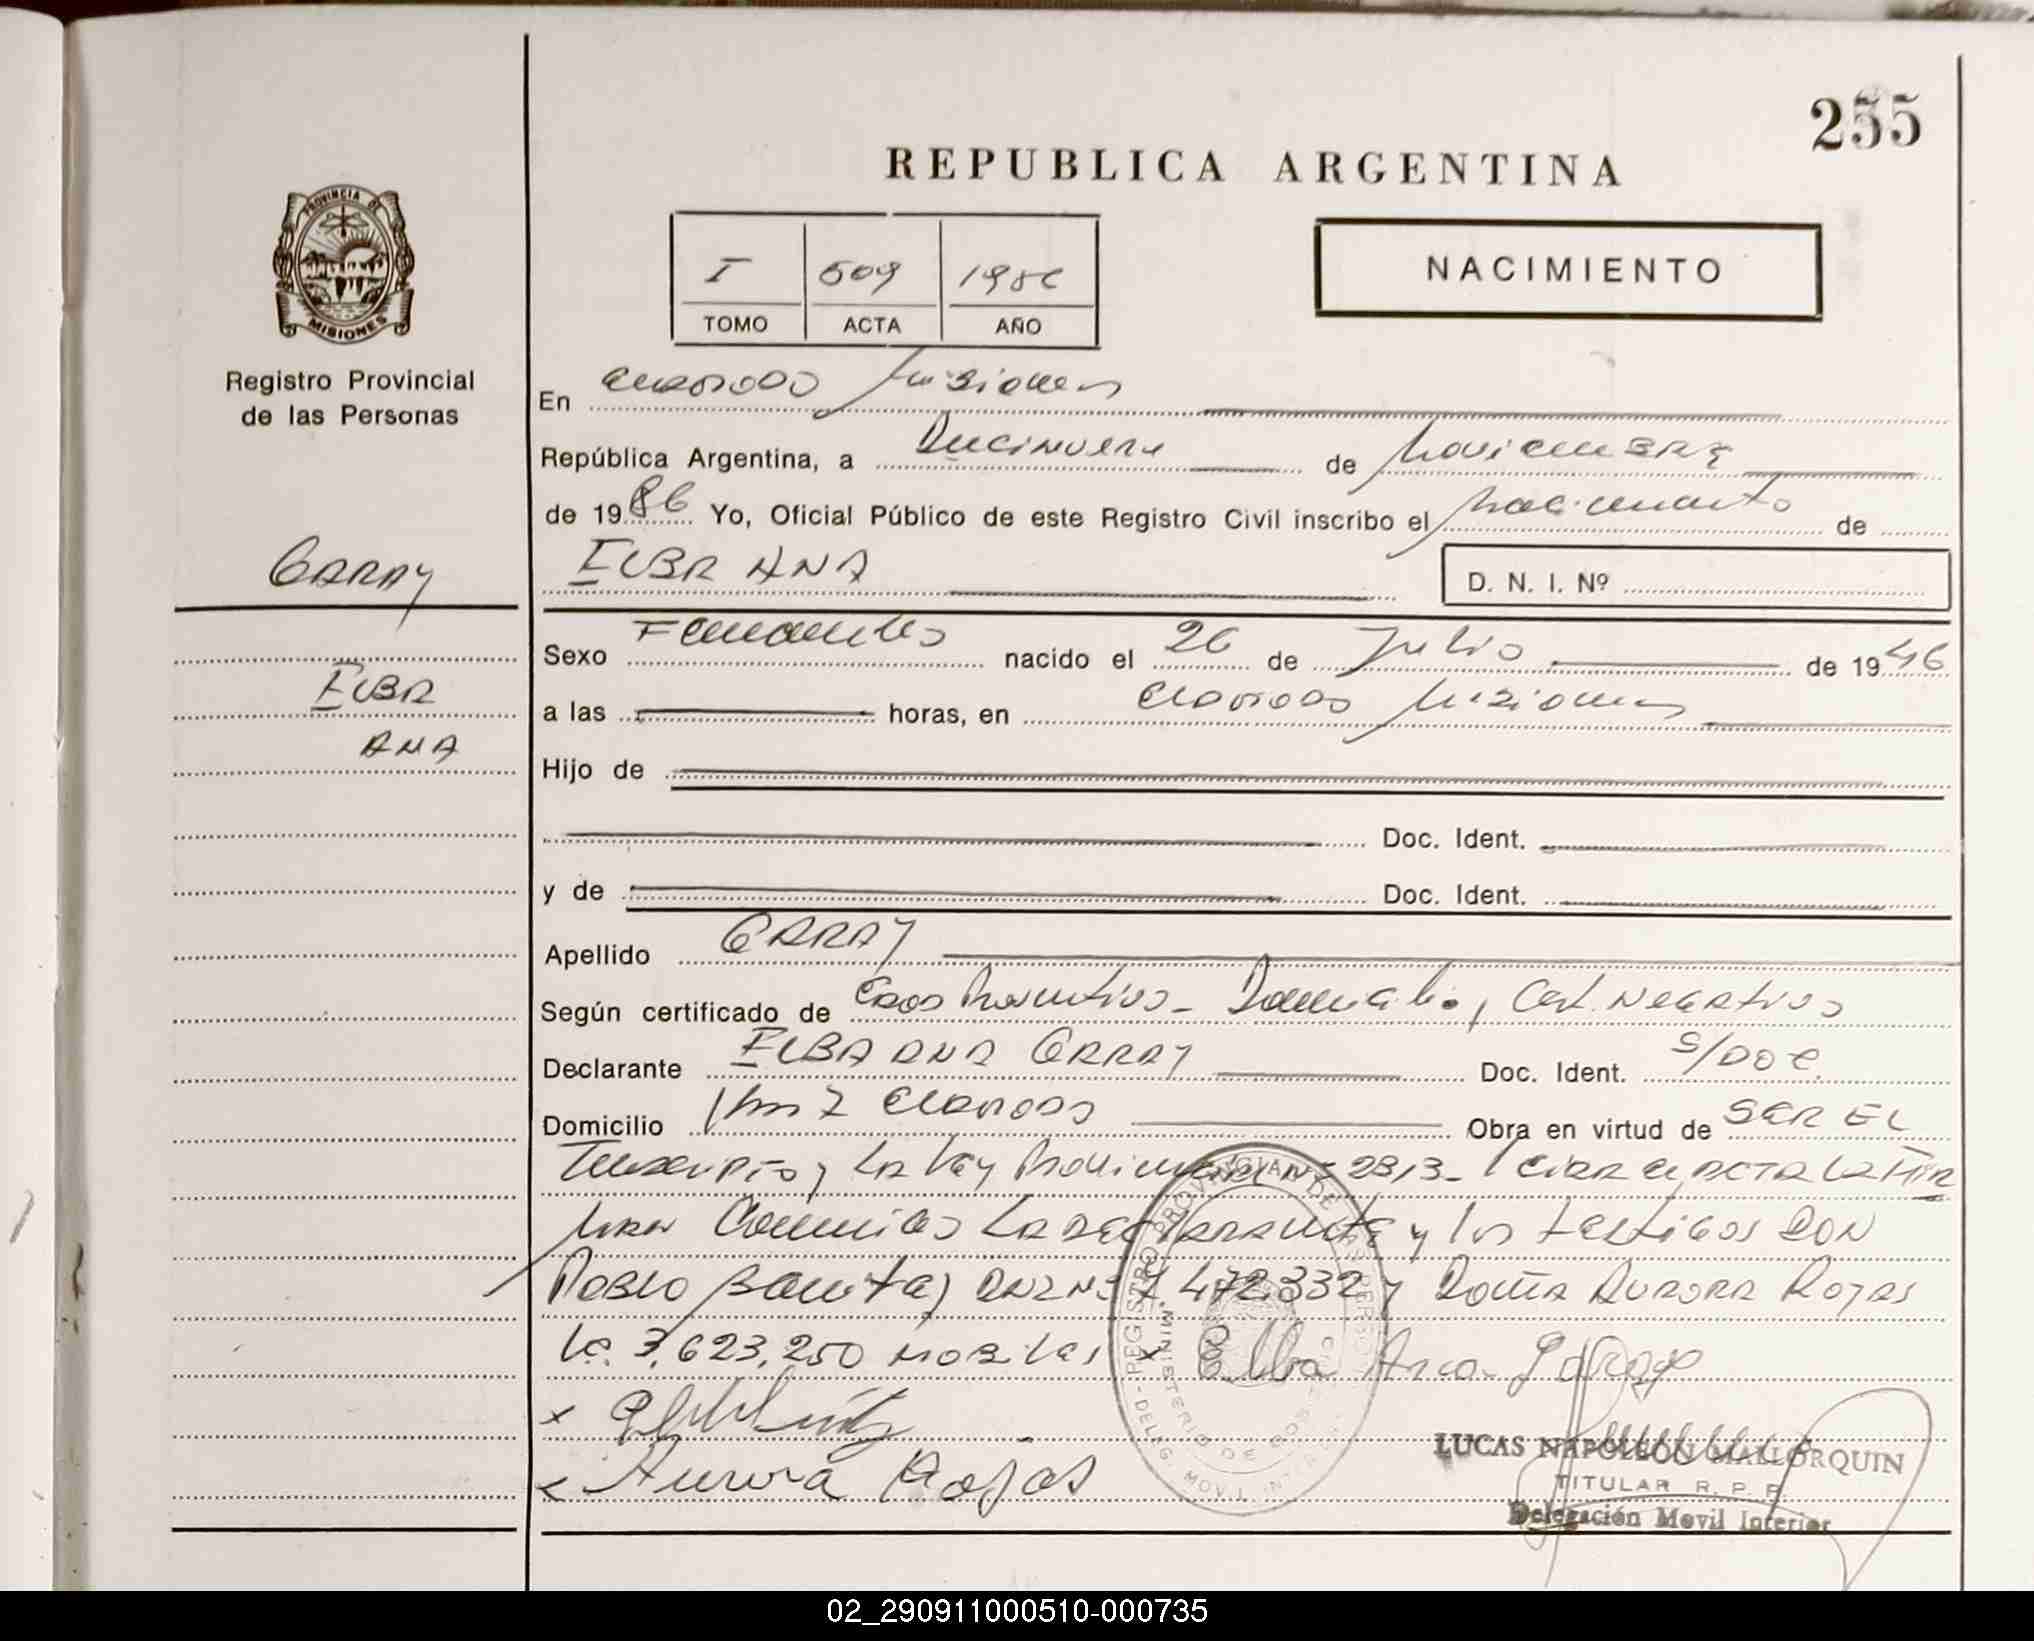 255
REPUBLICA ARGENTINA
PROVINCIA DE
MISIONES
I 509 1986
TOMO ACTA AÑO
NACIMIENTO
Registro Provincial
de las Personas
En Misiones
República Argentina, a Diecinueve de Noviembre
de 1986 Yo, Oficial Público de este Registro Civil inscribo el nacimiento de
GARAY
ELBA ANA
D. N. I. Nº
Sexo Femenino nacido el 26 de Julio de 1946
ELBA
ANA
a las horas, en Misiones
Hijo de
Doc. Ident.
y de Doc. Ident.
Apellido GARAY
Según certificado de Domicilio, Cert. Negativo
Declarante ELBA ANA GARAY Doc. Ident. S/DOC.
Domicilio Km 7 Obra en virtud de SER EL
Inscripto y La Ley Provincial Nº 2813- LA FIR
man Conmigo LA DECLARANTE y los testigos DON
Pablo 7.472.332 y Doña AURORA ROJAS
3.623.250 x Elba Ana Garay
x
x Aurora Rojas
REGISTRO PROVINCIAL DE LAS PERSONAS
MINISTERIO DE GOBIERNO
DELEG. MOVIL INTERIOR
LUCAS NAPOLEON MALLORQUIN
TITULAR R. P. P.
Delegación Movil Interior
02_290911000510-000735